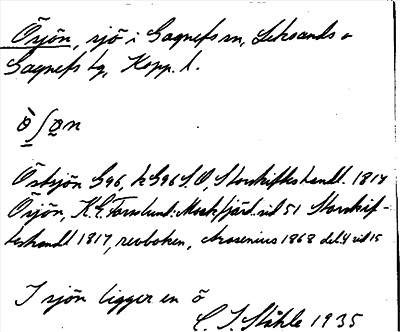 Ösjön, sjö i Gagnefs sn, Leksands o
Gagnefs tg, Kopp. l.
Östsjön G96, Storskifteshandl. 1817
Ösjön, K.G. Tornlund: Mockfjärd sid 51 Storskif-
teshandl 1817, revboken, Arosenius 1868 del.4 sid 15
I sjön ligger en ö
C. I. Ståhle 1935